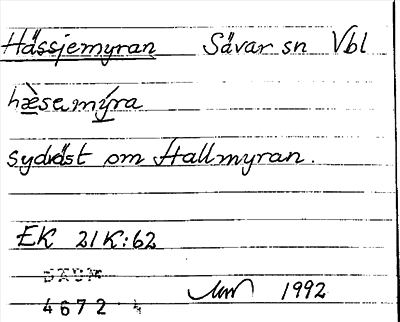 Hässjemyran Sävar sn Vbl
hæ̀semýra
sydväst om Hallmyran.
EK 21K:62
DAUM
4672 1992